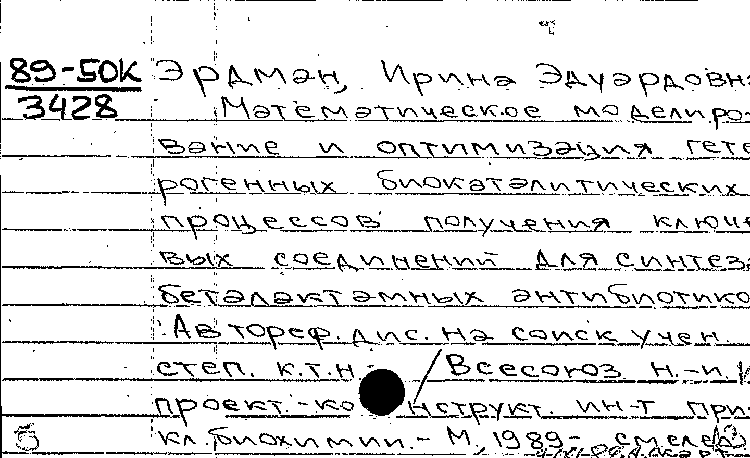 89-50К Эрдман, Ирина Эдуардовна
3428 Математическое моделиро-
вание и оптимизация гете
рогенных биокаталитических
процессов получения ключе
вых соединений для синтеза
беталактамных антибиотико
Автореф. дис. на соиск учен.
степ. к.т.н. / Всесоюз. н.-и. и
проект.-ко нструкт. ин-т при
кл. биохимии. - М, 1989 -